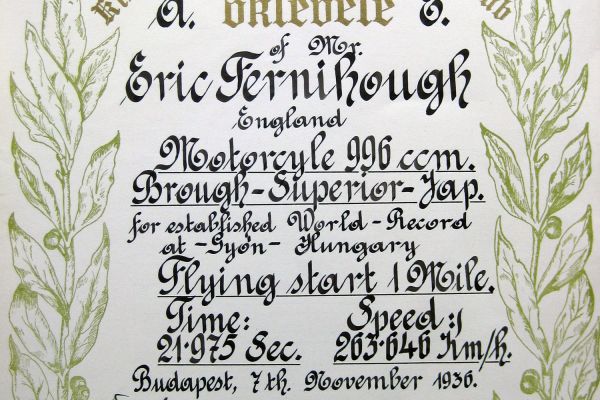 a. oklevele d.
of Mr.
Eric Fernihough
England
Motorcyle 996 ccm.
Brough-Superior-Jap.
for established World-Record
at-Gyón-Hungary
Flying start 1 Mile.
Time: Speed:
21·975 Sec. 263·646 Km/h.
Budapest, 7 th. November 1936.